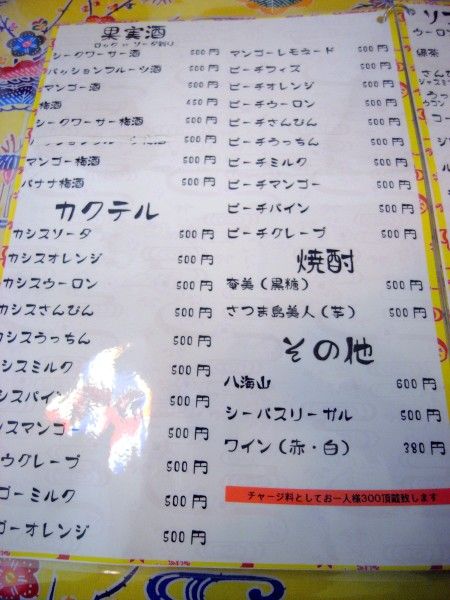 果実酒
ロック or ソーダ割り
シークワーサー酒 500円
パッションフルーツ酒 500円
マンゴー酒 500円
梅酒 450円
シークワーサー梅酒 500円
500円
マンゴー梅酒 500円
バナナ梅酒 500円
カクテル
カシスソーダ 500円
カシスオレンジ 500円
カシスウーロン 500円
カシスさんぴん 500円
カシスうっちん 500円
シスミルク 500円
シスパイン 500円
スマンゴー 500円
ウグレープ 500円
ゴーミルク 500円
ゴーオレンジ 500円
マンゴーレモネード 500円
ピーチフィズ 500円
ピーチオレンジ 500円
ピーチウーロン 500円
ピーチさんぴん 500円
ピーチうっちん 500円
ピーチミルク 500円
ピーチマンゴー 500円
ピーチパイン 500円
ピーチグレープ 500円
焼酎
奄美（黒糖） 500円
さつま島美人（芋） 500円
その他
八海山 600円
シーバスリーガル 500円
ワイン（赤・白） 380円
チャージ料としてお一人様300頂戴致します
ソフ
ウーロン
緑茶
さんぴ
ジャスミ
うっ
ウコン
コー